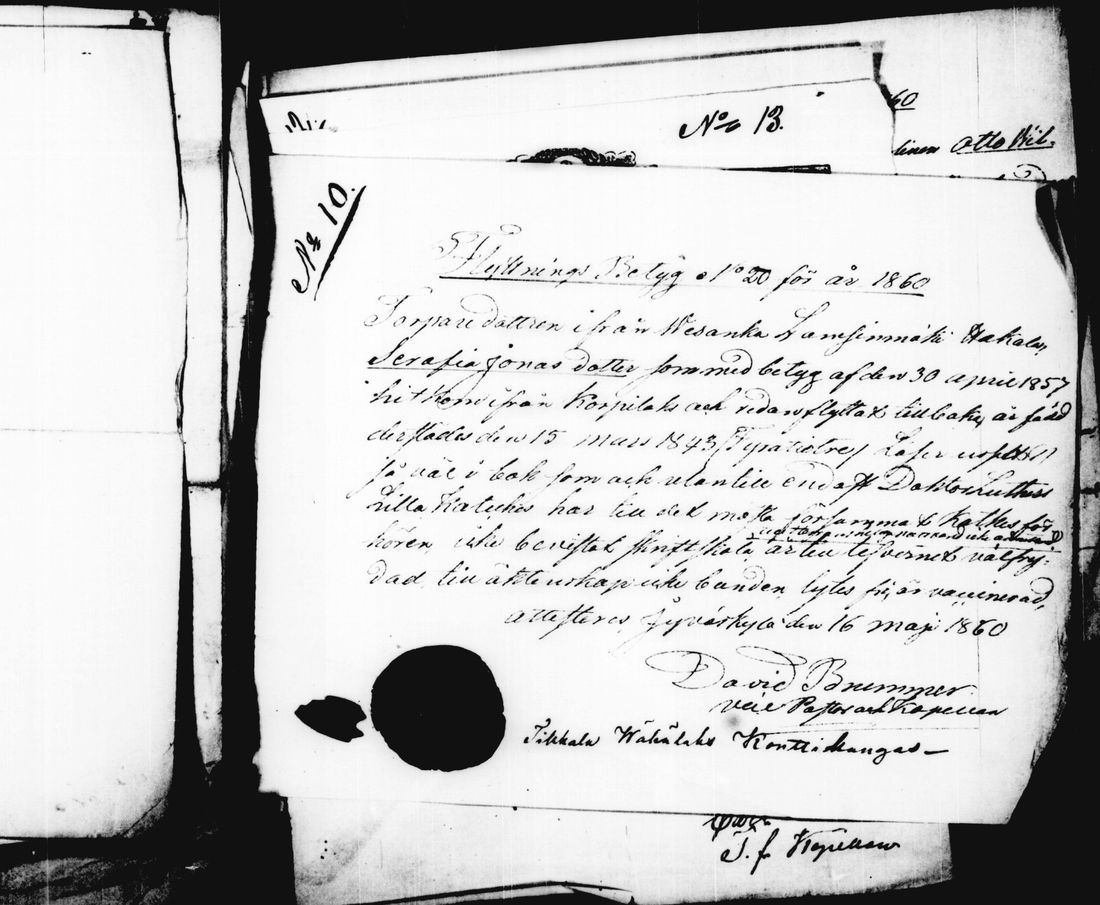 No 13.
60
linen Otto Wil-
No 10.
Flyttnings Betyg No 20 för år 1860
Torparedottren ifrån Wesanka Lamsinmäki Hakala,
Serafia Jonas dotter som med betyg af den 30 april 1857
hitkom ifrån Korpilaks och redan flyttat tillbaka, är född
derstädes den 15 mars 1843, Läser
så väl i bok som ock utantill endast Doktor Luthers
Lilla Katekes har till det mesta försummat Kalkes för-
hören, icke bevistat skriftskola är till lefvernet välfrej-
dad, till äktenskap icke bunden, lytes fri, är vaccinerad,
attesteres, Jyväskylä den 16 maji 1860
David Brummer
vice Pastor och Kapellan
Tikkala Wähälaks Konttikangas—
T. f. Kapellan